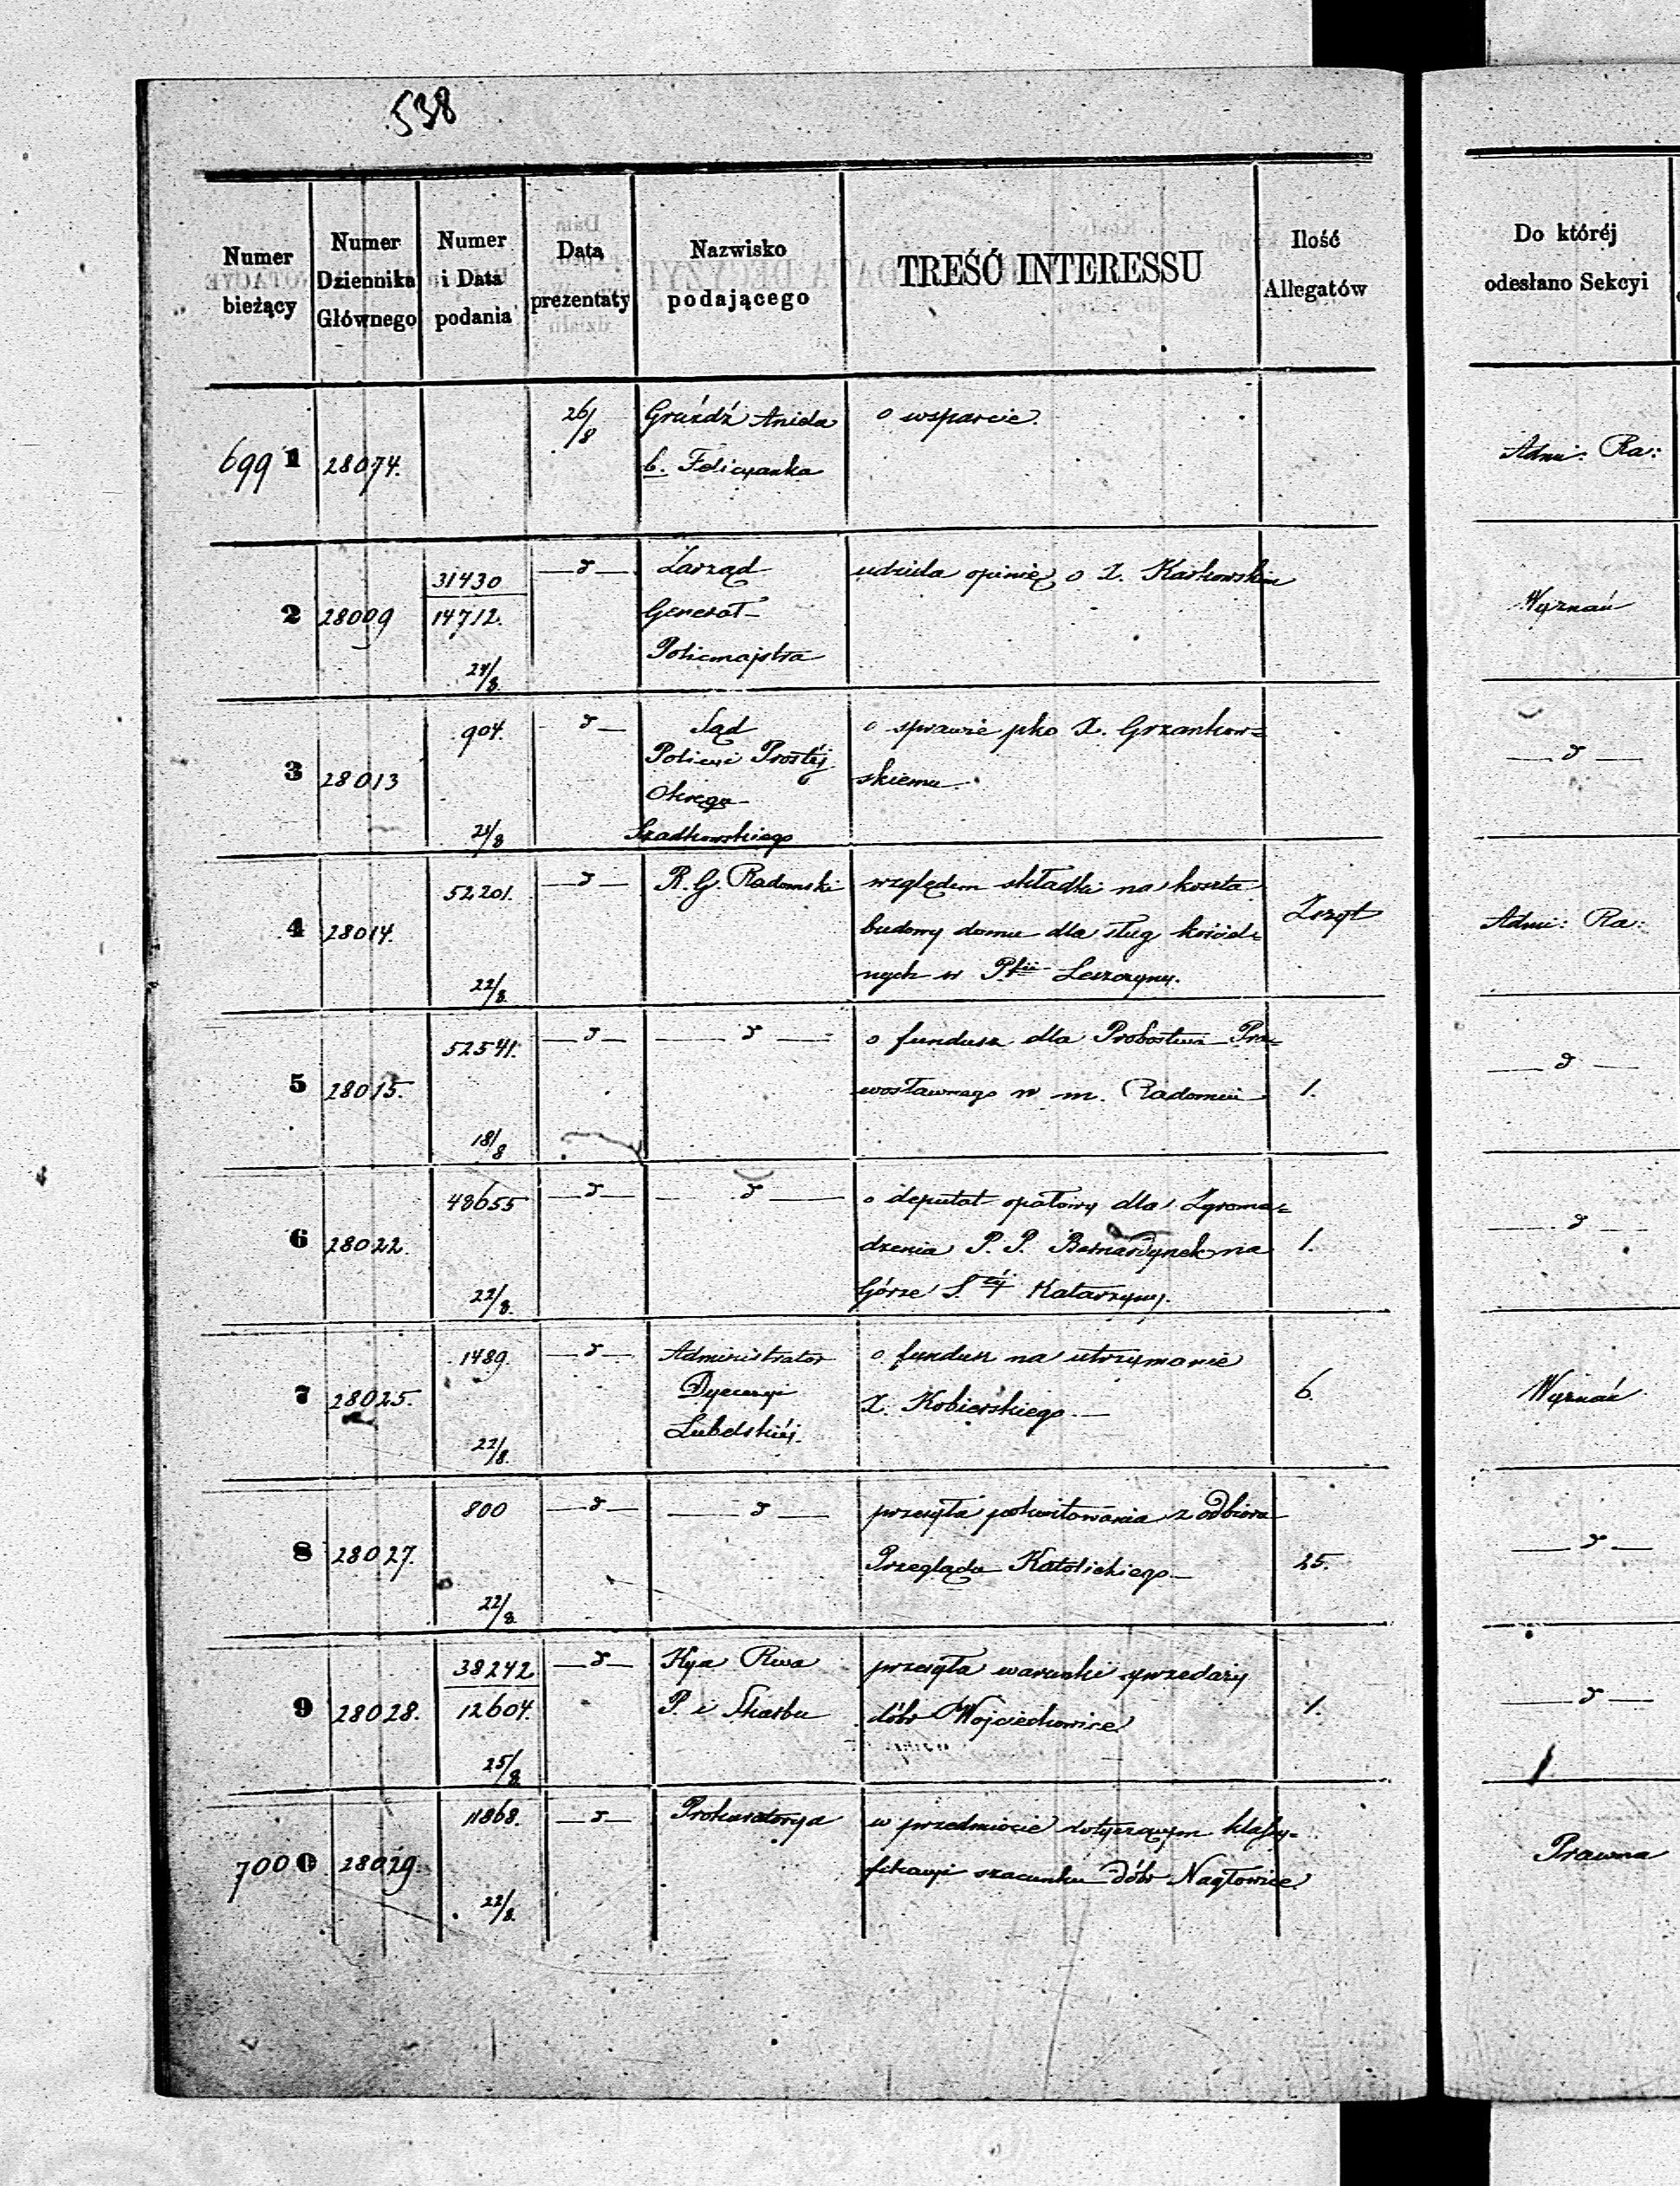 538
Numer bieżący | Numer Dziennika Głównego | Numer i Data podania | Data prezentaty | Nazwisko podającego | TREŚĆ INTERESSU | Ilość Allegatów | Do któréj odesłano Sekcyi
6991 | 28074. | 26/8 | Gruźdź Aniela | o wsparcie. | Admi: Ra:
b. Felicyanka
2 | 28009 | 31430 | — d — | Zarząd | udziela opinię o X. Karkowskim | Wyznań
14712. | Generał-
24/8 | Policmajstra
3 | 28013 | 904. | — d — | Sąd | o sprawie pko X. Grzankow= | — d —
Policyi Prostéj | skiemu.
Okręgu
23/8 | Szadkowskiego
4 | 28014. | 52201. | — d — | R. G. Radomski | względem składki na koszta | Zeszyt | Admi: Ra:
budowy domu dla sług kościel=
22/8. | nych w Pfii Leszczyny.
5 | 28015. | 52541. | — d — | — d — | o fundusz dla Probostwa Pra= | 1. | — d —
wosławnego w m. Radomiu
18/8
6 | 28022. | 48655 | — d — | — d — | o deputat opałowy dla Zgroma= | 1. | — d —
dzenia P. P. Bernardynek na
22/8. | Górze S.téj Katarzyny.
7 | 28025. | 1489. | — d — | Administrator | o fundusz na utrzymanie | 6. | Wyznań
Dyecezyi | X. Kobierskiego.—
22/8. | Lubelskiéj.
8 | 28027. | 800 | — d — | — d — | przesyła pokwitowania z odbioru | 25. | — d —
Przeglądu Katolickiego—
22/8.
9 | 28028. | 38242 | — d — | Kya Rwa | przesyła warunki sprzedaży | 1. | — d —
12604. | P. i Skarbu | dóbr Wojciechowice
25/8.
7000 | 28029. | 11868. | — d — | Prokuratorya | w przedmiocie dotyczącym klasy= | Prawna
fikacyi szacunku dóbr Nagłowice.
22/8.